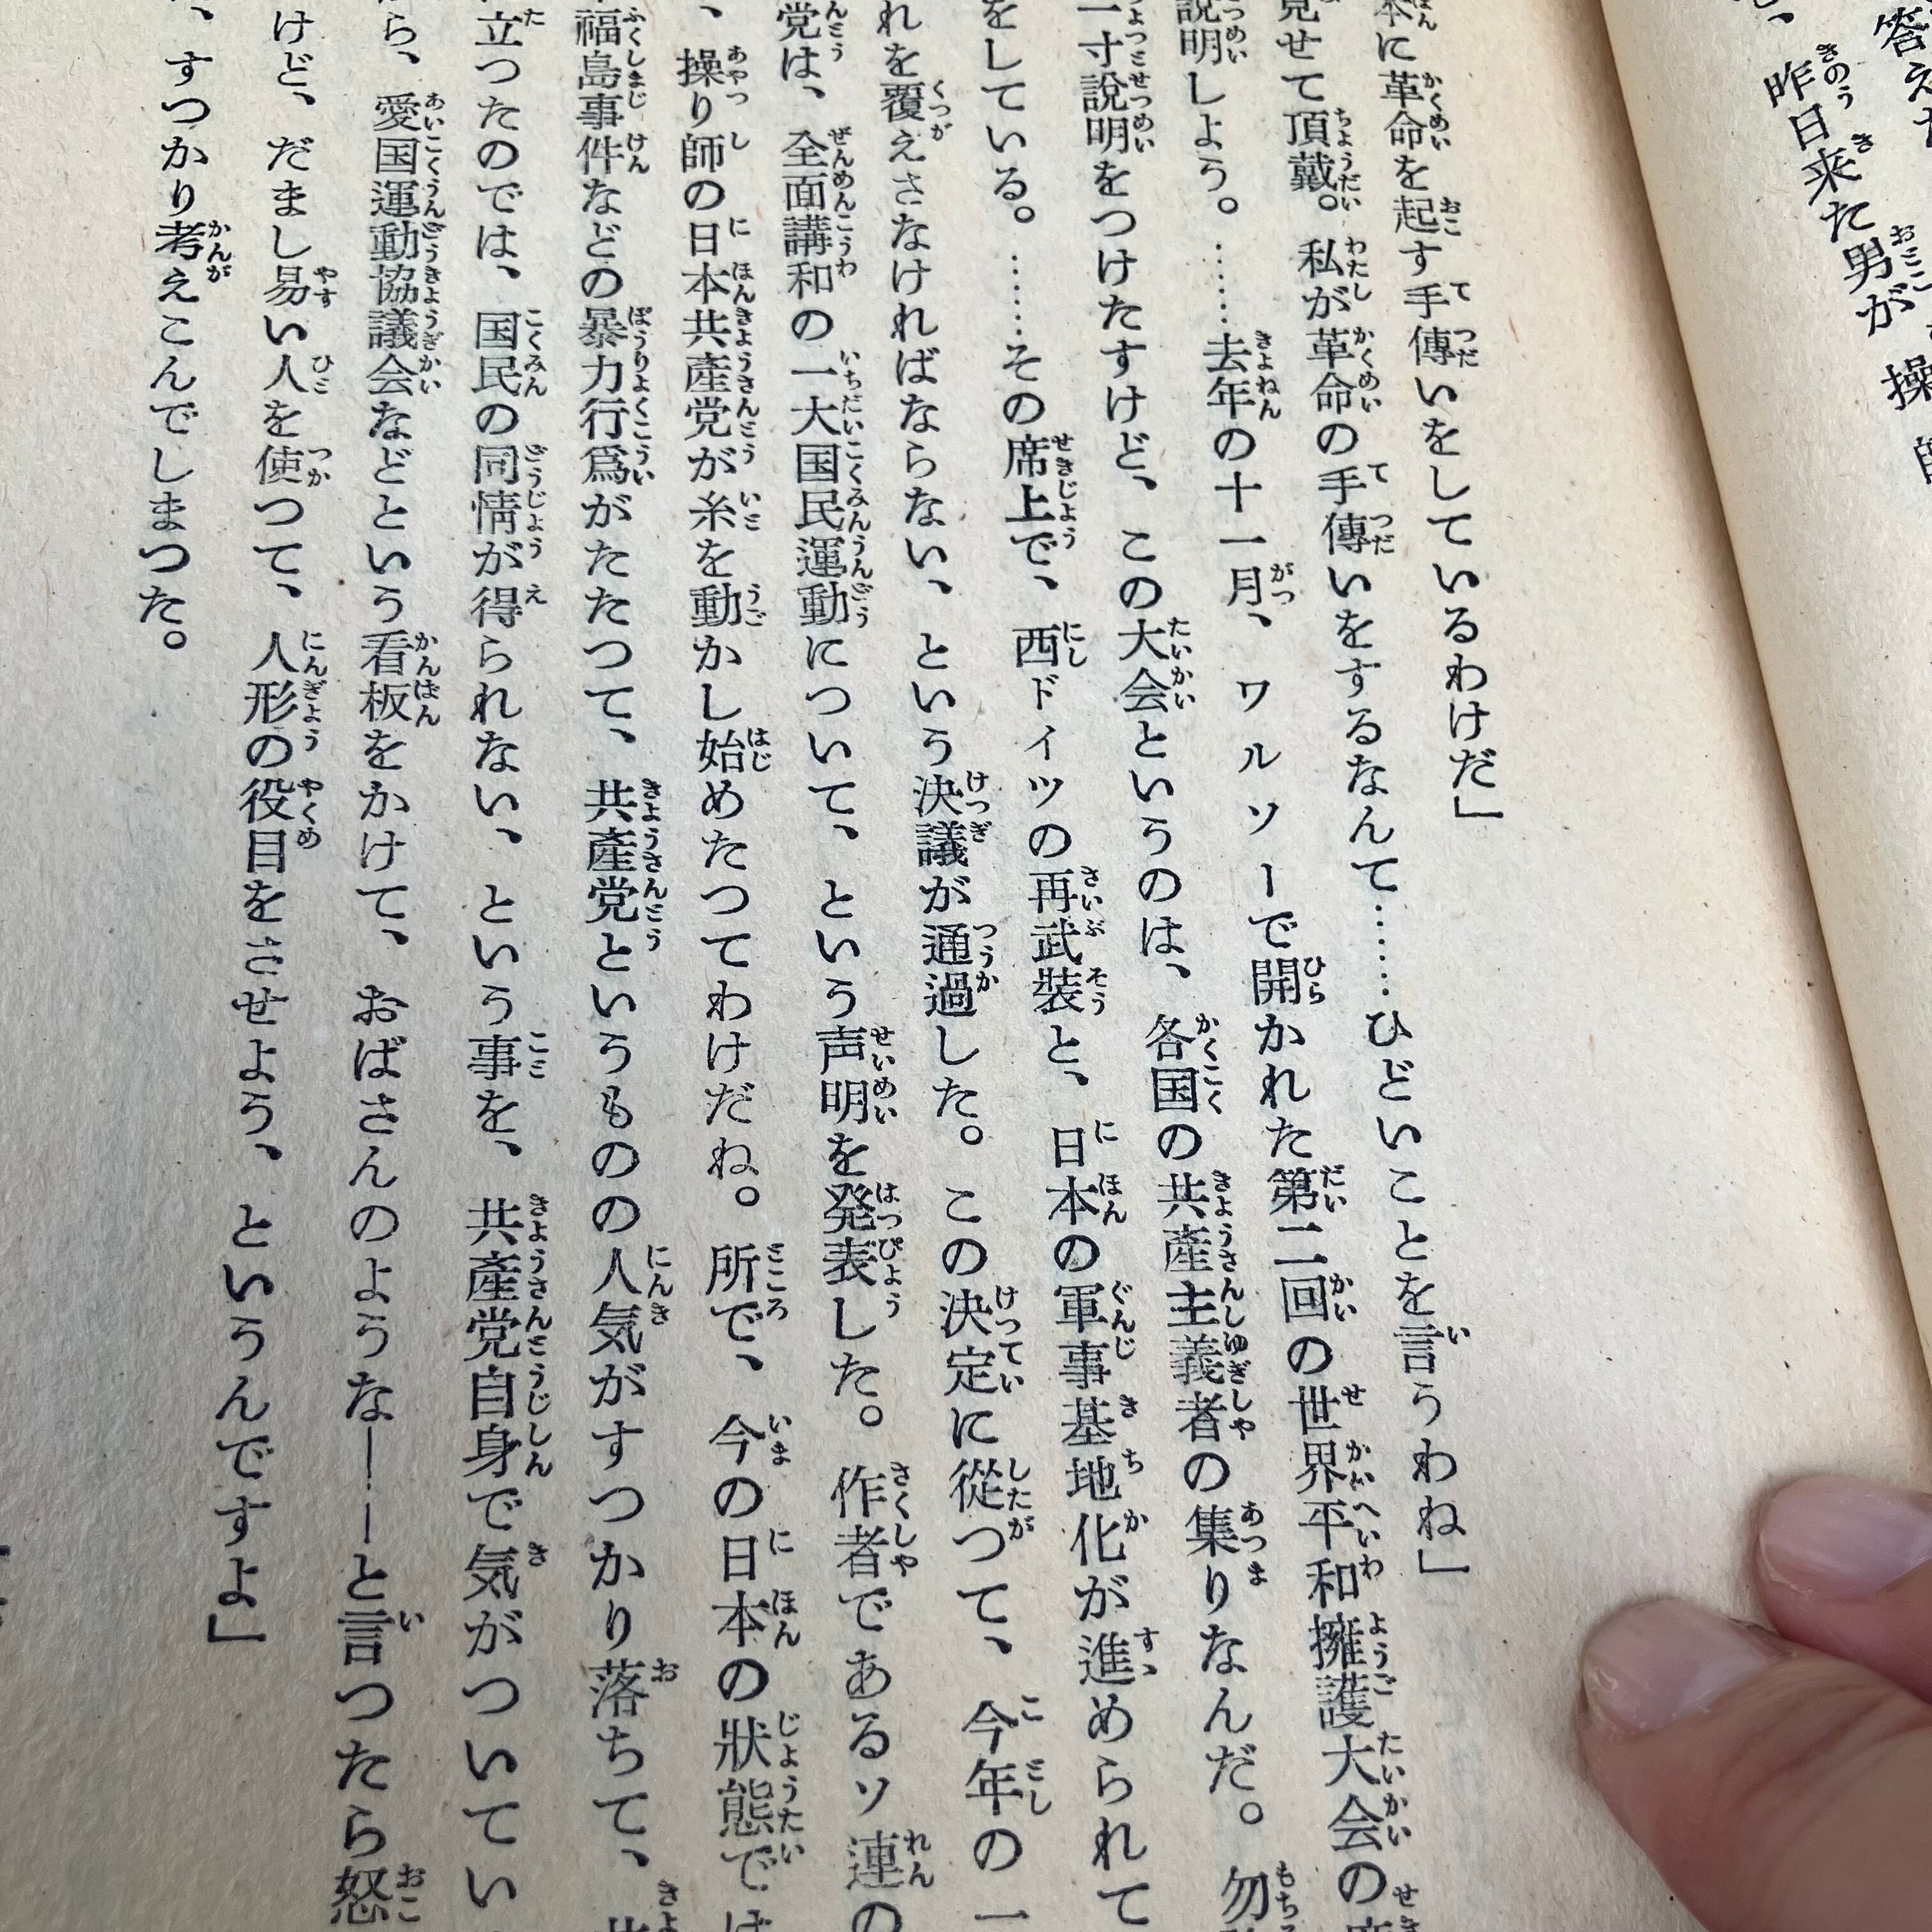 答え
昨日来た男が
操
本に革命を起す手傳いをしているわけだ」
見せて頂戴。私が革命の手傳いをするなんて……ひどいことを言うわね」
説明しよう。……去年の十一月、ワルソーで開かれた第二回の世界平和擁護大会の
一寸説明をつけたすけど、この大会というのは、各国の共産主義者の集りなんだ。勿
をしている。……その席上で、西ドイツの再武装と、日本の軍事基地化が進められて
れを覆えさなければならない、という決議が通過した。この決定に從つて、今年の一
党は、全面講和の一大国民運動について、という声明を発表した。作者であるソ連の
、操り師の日本共産党が糸を動かし始めたつてわけだね。所で、今の日本の狀態では
福島事件などの暴力行爲がたたつて、共産党というものの人気がすつかり落ちて、
立つたのでは、国民の同情が得られない、という事を、共産党自身で気がついてい
ら、愛国運動協議会などという看板をかけて、おばさんのような――と言つたら怒
けど、だまし易い人を使つて、人形の役目をさせよう、というんですよ」
、すつかり考えこんでしまつた。